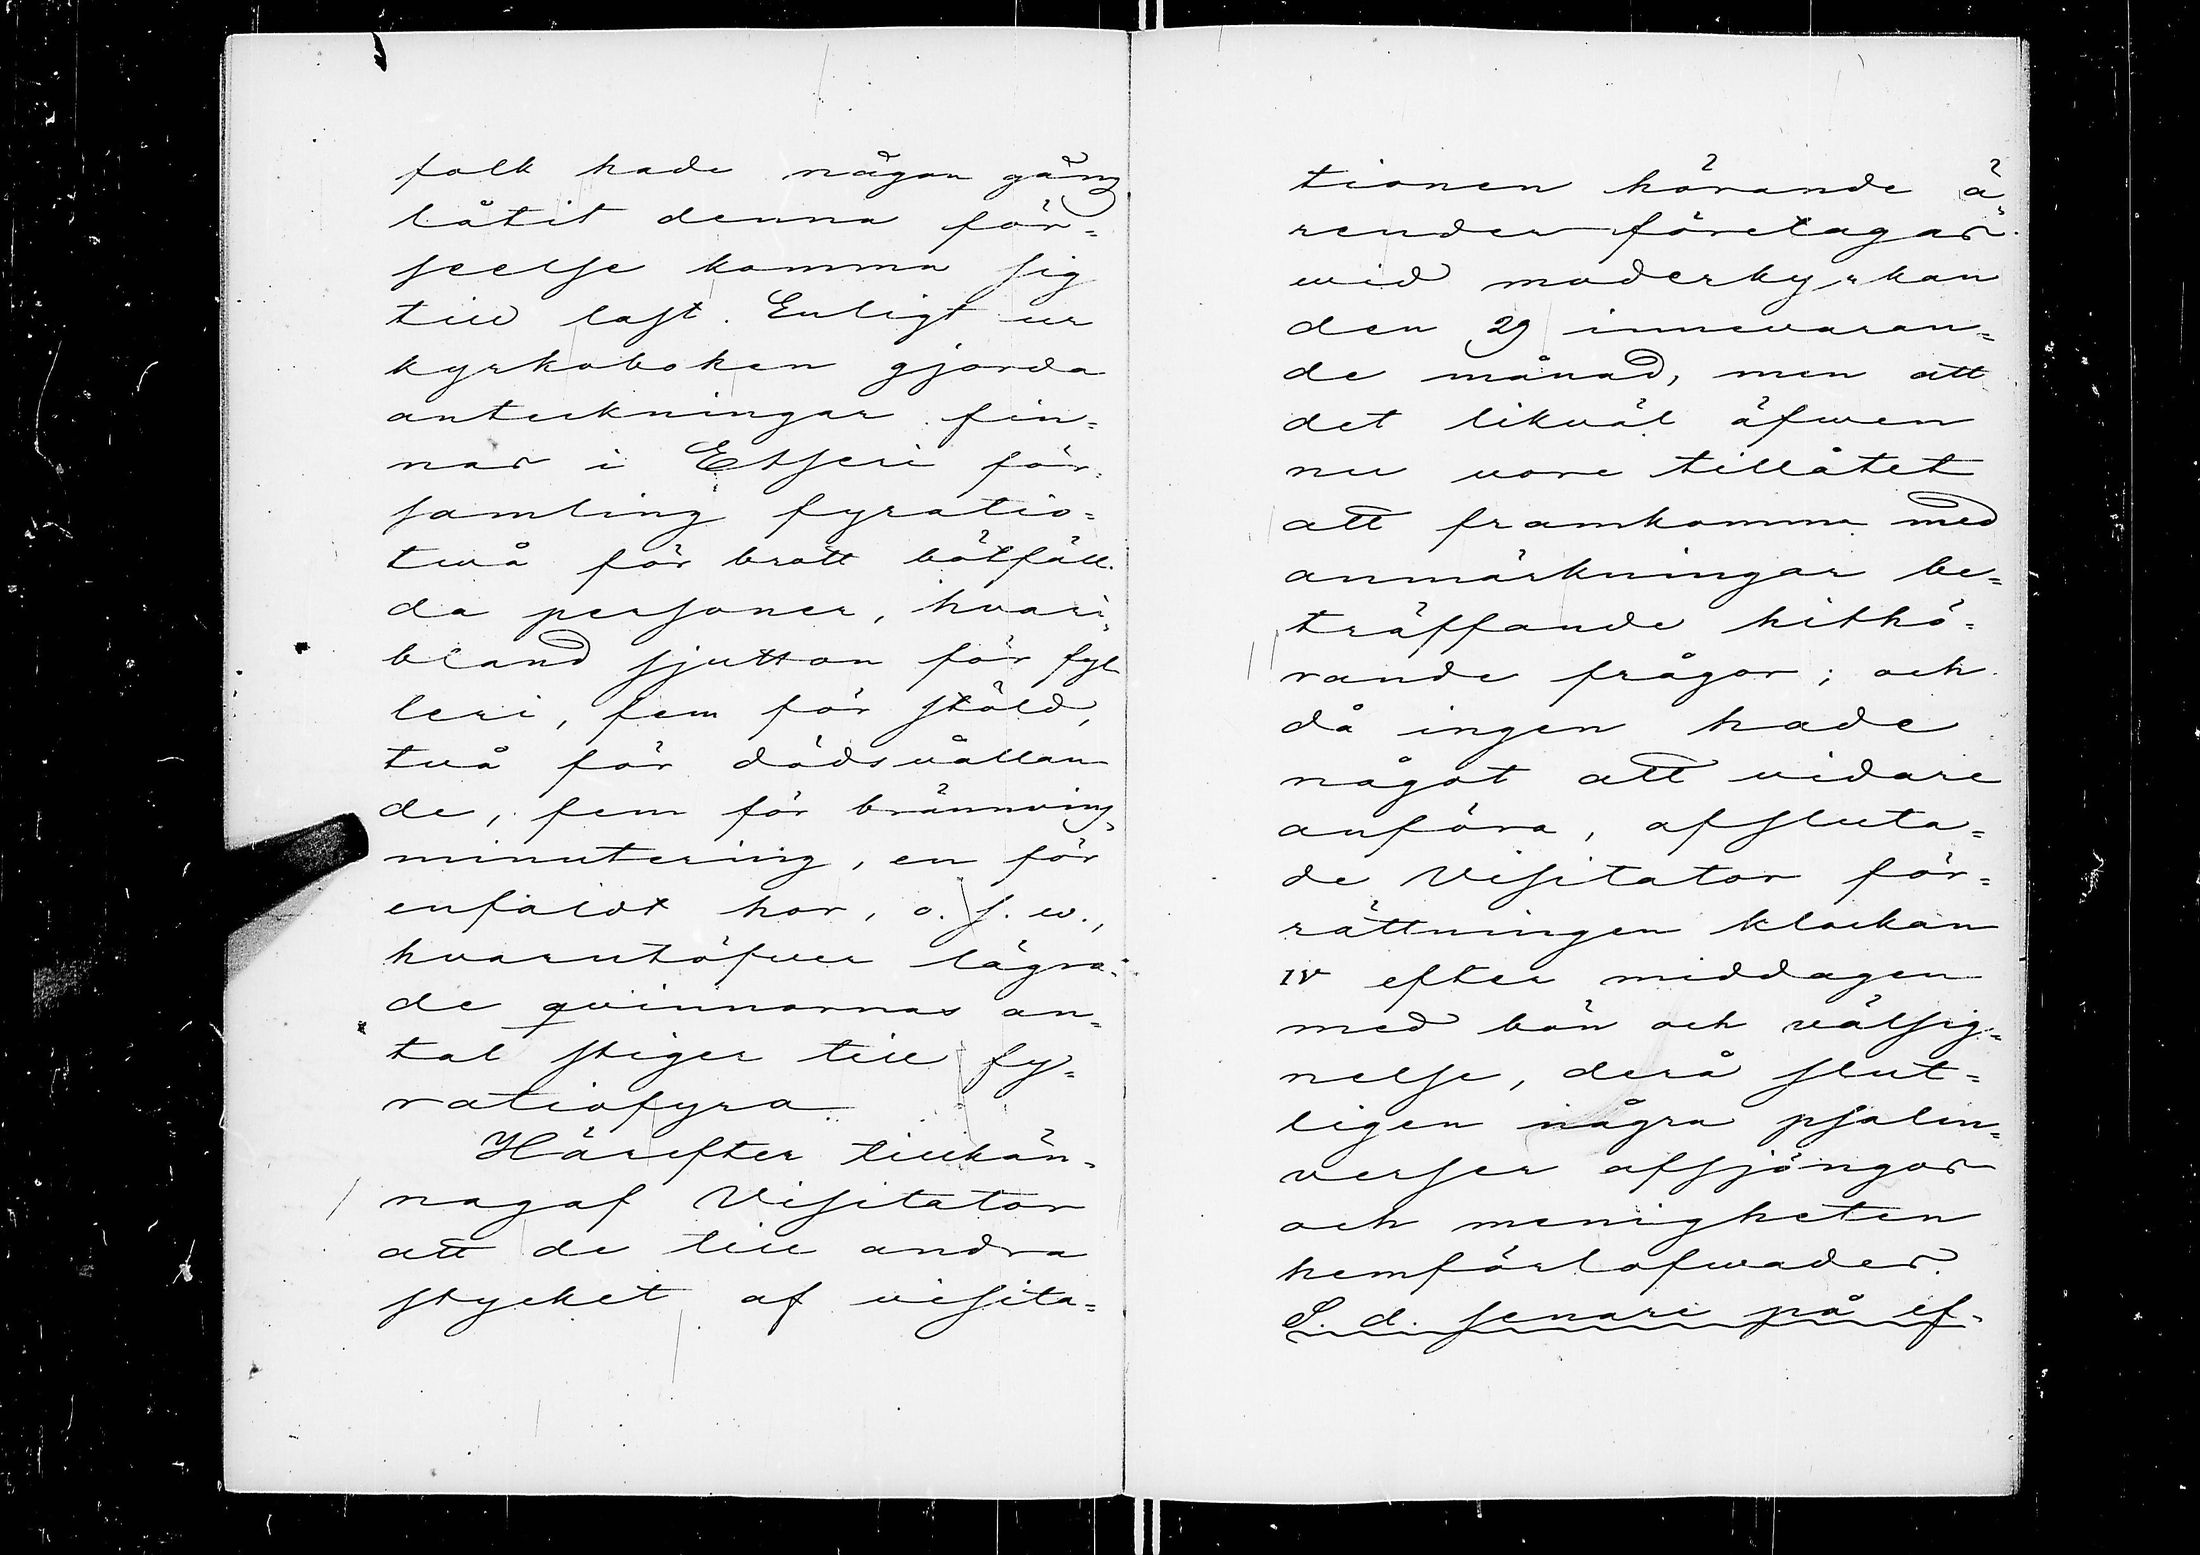 folk hade någon gång
låtit denna för-
seelse komma sig
till last. Enligt ur
kyrkoboken gjorda
anteckningar fin-
nas i Etseri för-
samling fyratio-
två för brott bötfäll-
da personer, hvari-
bland sjutton för fyl
leri, fem för stöld,
två för dödsvållan
de, fem för brännvins-
minutering, en för
enfaldt hor, o. s. w.,
hvarutöfver lägra-
de qvinnornas an-
tal stiger till fy-
ratiofyra.
Härefter tillkän-
nagaf Visitator
att de till andra
stycket af visita-
tionen hörande ä-
renden företagas
wid moderkyrkan
den 29 innevaran-
de månad, men att
det likväl äfwen
nu vore tillåtet
att framkomma med
anmärkningar be-
träffande hithö-
rande frågor; och
då ingen hade
något att vidare
anföra, afsluta-
de Visitator för-
rättningen klockan
IV efter middagen
med bön och välsig-
nelse, derå slut-
ligen några psalm-
verser afsjöngos
och menigheten
hemförlofwades.
S. d. senare på ef-